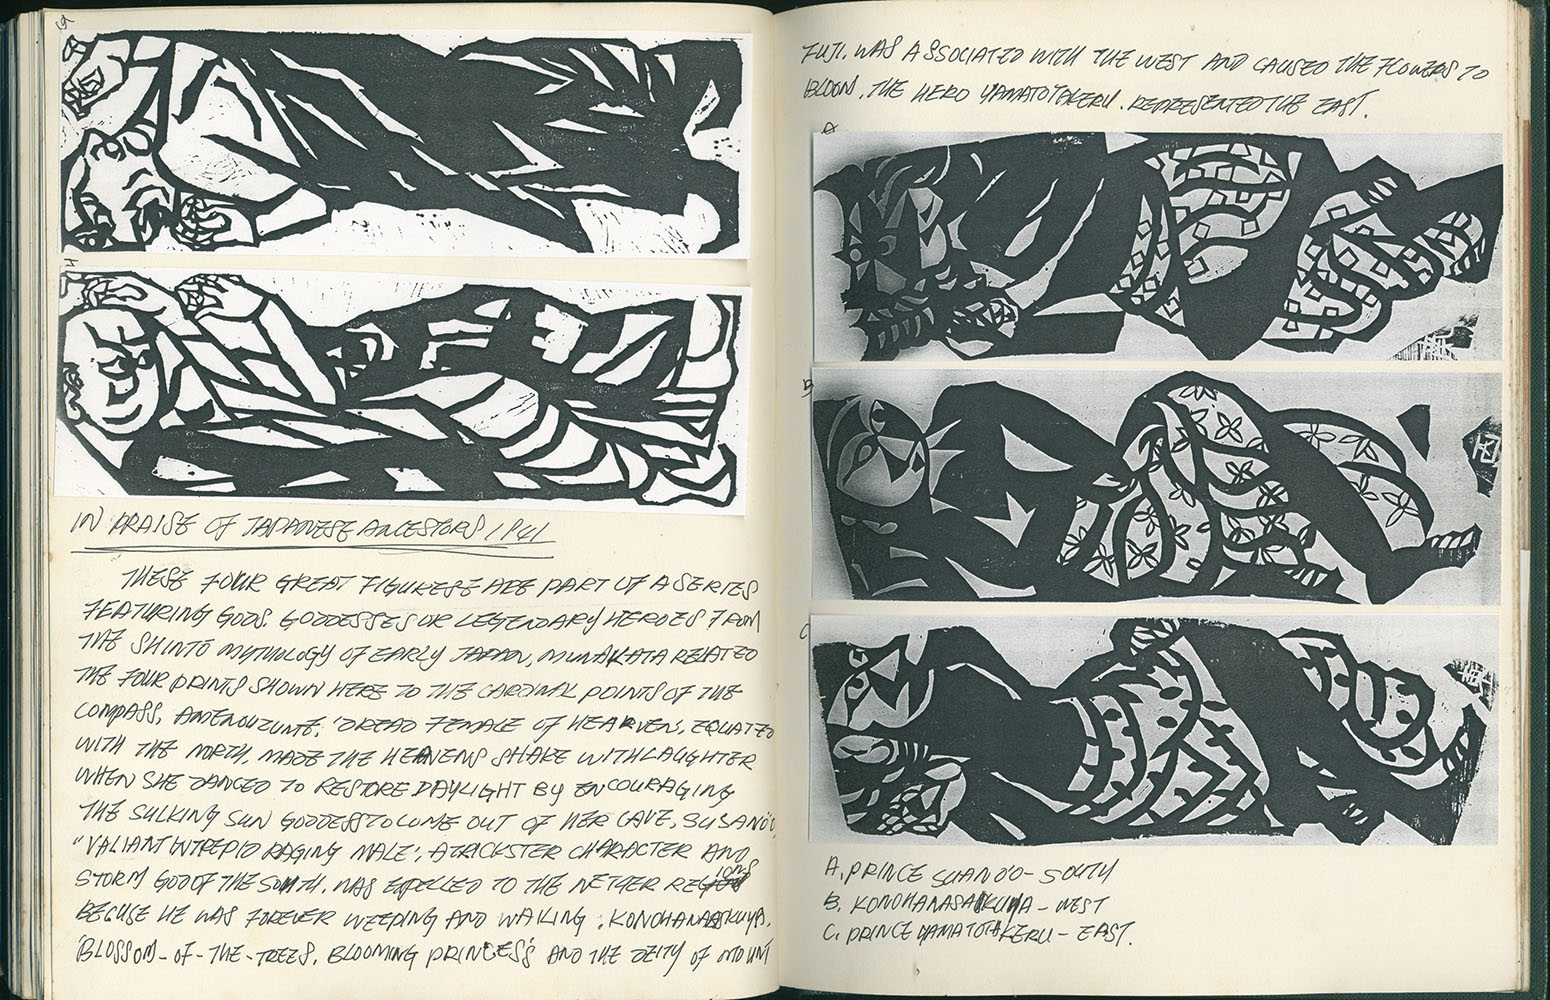 G
H
IN PRAISE OF JAPANESE ANCESTORS 1941
THESE FOUR GREAT FIGURESE ARE PART OF A SERIES
FEATURING GODS. GODDESSES OR LEGENDARY HEROES FROM
THE SHINTO MYTHOLOGY OF EARLY JAPAN, MUNAKATA RELATED
THE FOUR PRINTS SHOWN HERE TO THE CARDINAL POINTS OF THE
COMPASS, AMENOUZUNE, 'DREAD FEMALE OF HEAVEN', EQUATED
WITH THE NORTH, MADE THE HEAVENS SHAKE WITH LAUGHTER
WHEN SHE DANCED TO RESTORE DAYLIGHT BY ENCOURAGING
THE SULKING SUN GODDESS TO COME OUT OF HER CAVE, SUSANO'O
"VALIANT INTREPID RAGING MALE', A TRICKSTER CHARACTER AND
STORM GOD OF THE SOUTH. WAS EXPELLED TO THE NETHER REGIONS
BECUSE HE WAS FOREVER WEEPING AND WAILING. KONOHANASAKUYA.
'BLOSSOM-OF-THE-TREES. BLOOMING PRINCESS' AND THE DEITY OF MOUNT
FUJI. WAS ASSOCIATED WITH THE WEST AND CAUSED THE FLOWERS TO
BLOOM. THE HERO YAMATOTAKERU. REPRESENTED THE EAST.
A
B
C
A. PRINCE SUANO'O - SOUTH
B. KONOHANASAKUYA - WEST
C. PRINCE YAMATOTAKERU - EAST.